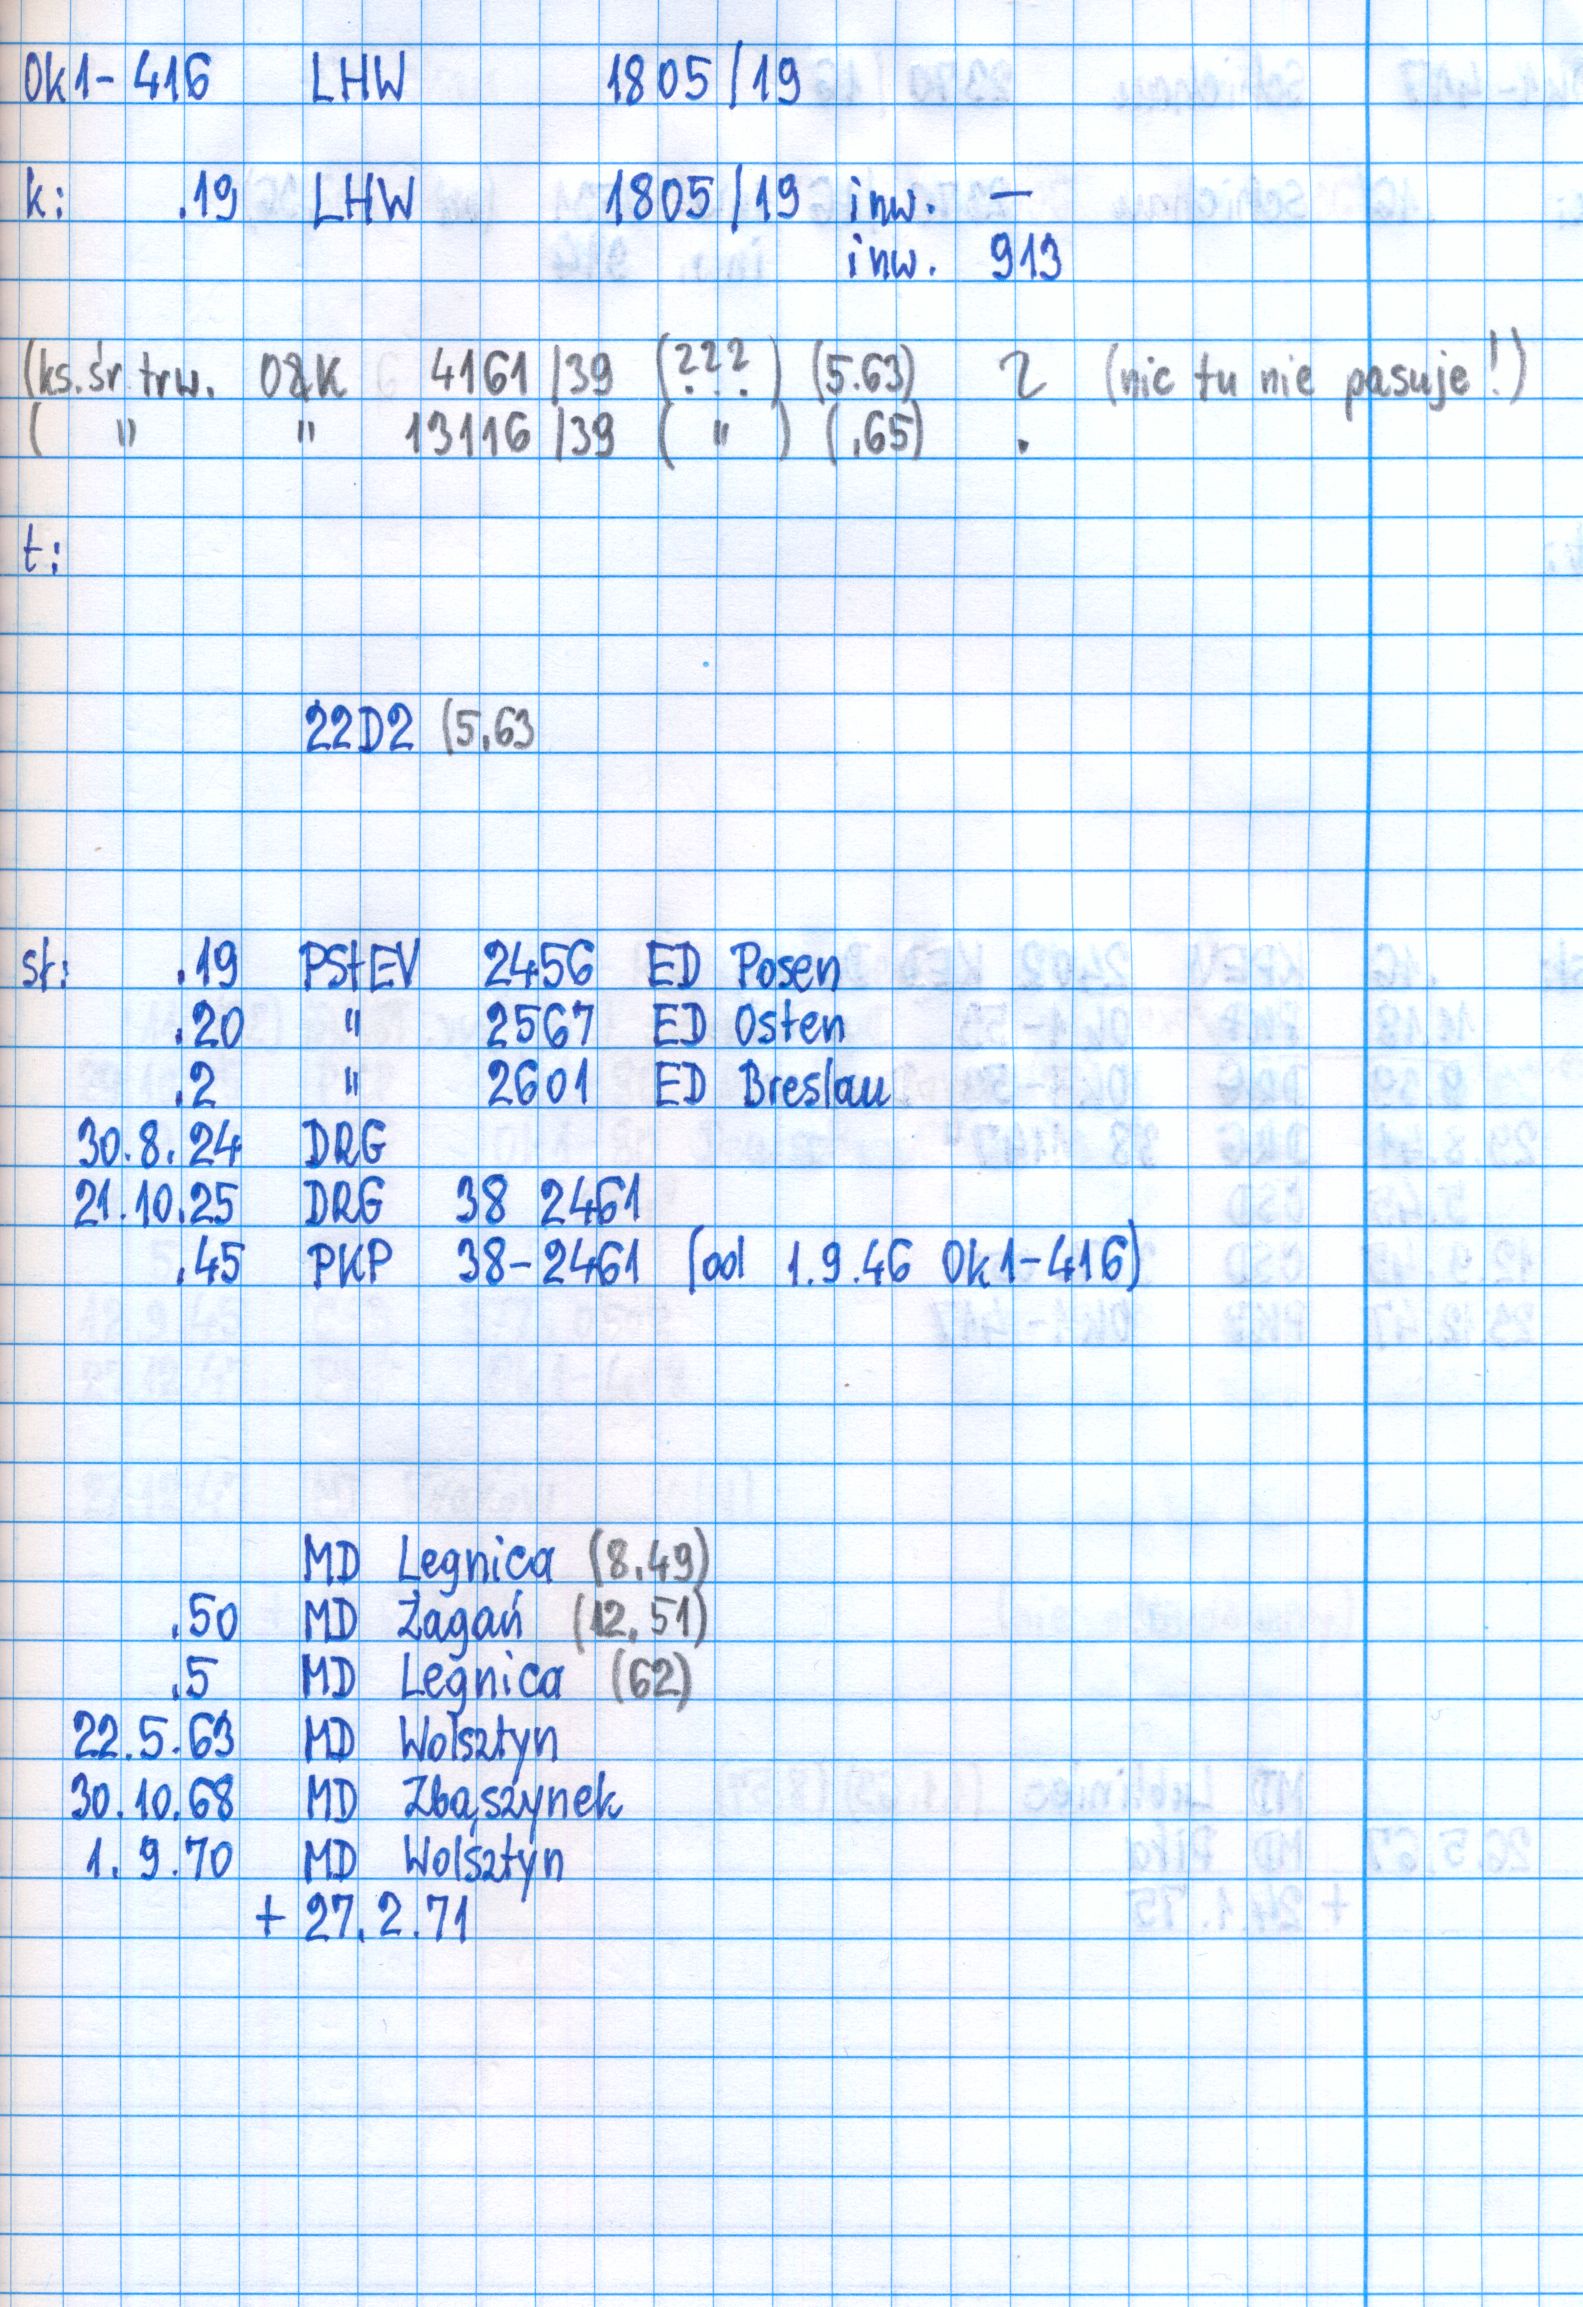 Ok1-416 LHW 1805/19
k: .19 LHW 1805/19 inw. —
inw. 913
(ks.śr.trw. O&K 4161/39 (???) (5.63) ? (nic tu nie pasuje!)
( " " 13116/39 ( " ) (.65)
t:
22D2 (5.63
st: .19 PStEV 2456 ED Posen
.20 " 2567 ED Osten
.2 " 2601 ED Breslau
30.8.24 DRG
21.10.25 DRG 38 2461
.45 PKP 38-2461 (od 1.9.46 Ok1-416)
MD Legnica (8.49)
.50 MD Żagań (12.51)
.5 MD Legnica (62)
22.5.63 MD Wolsztyn
30.10.68 MD Zbąszynek
1.9.70 MD Wolsztyn
+ 27.2.71